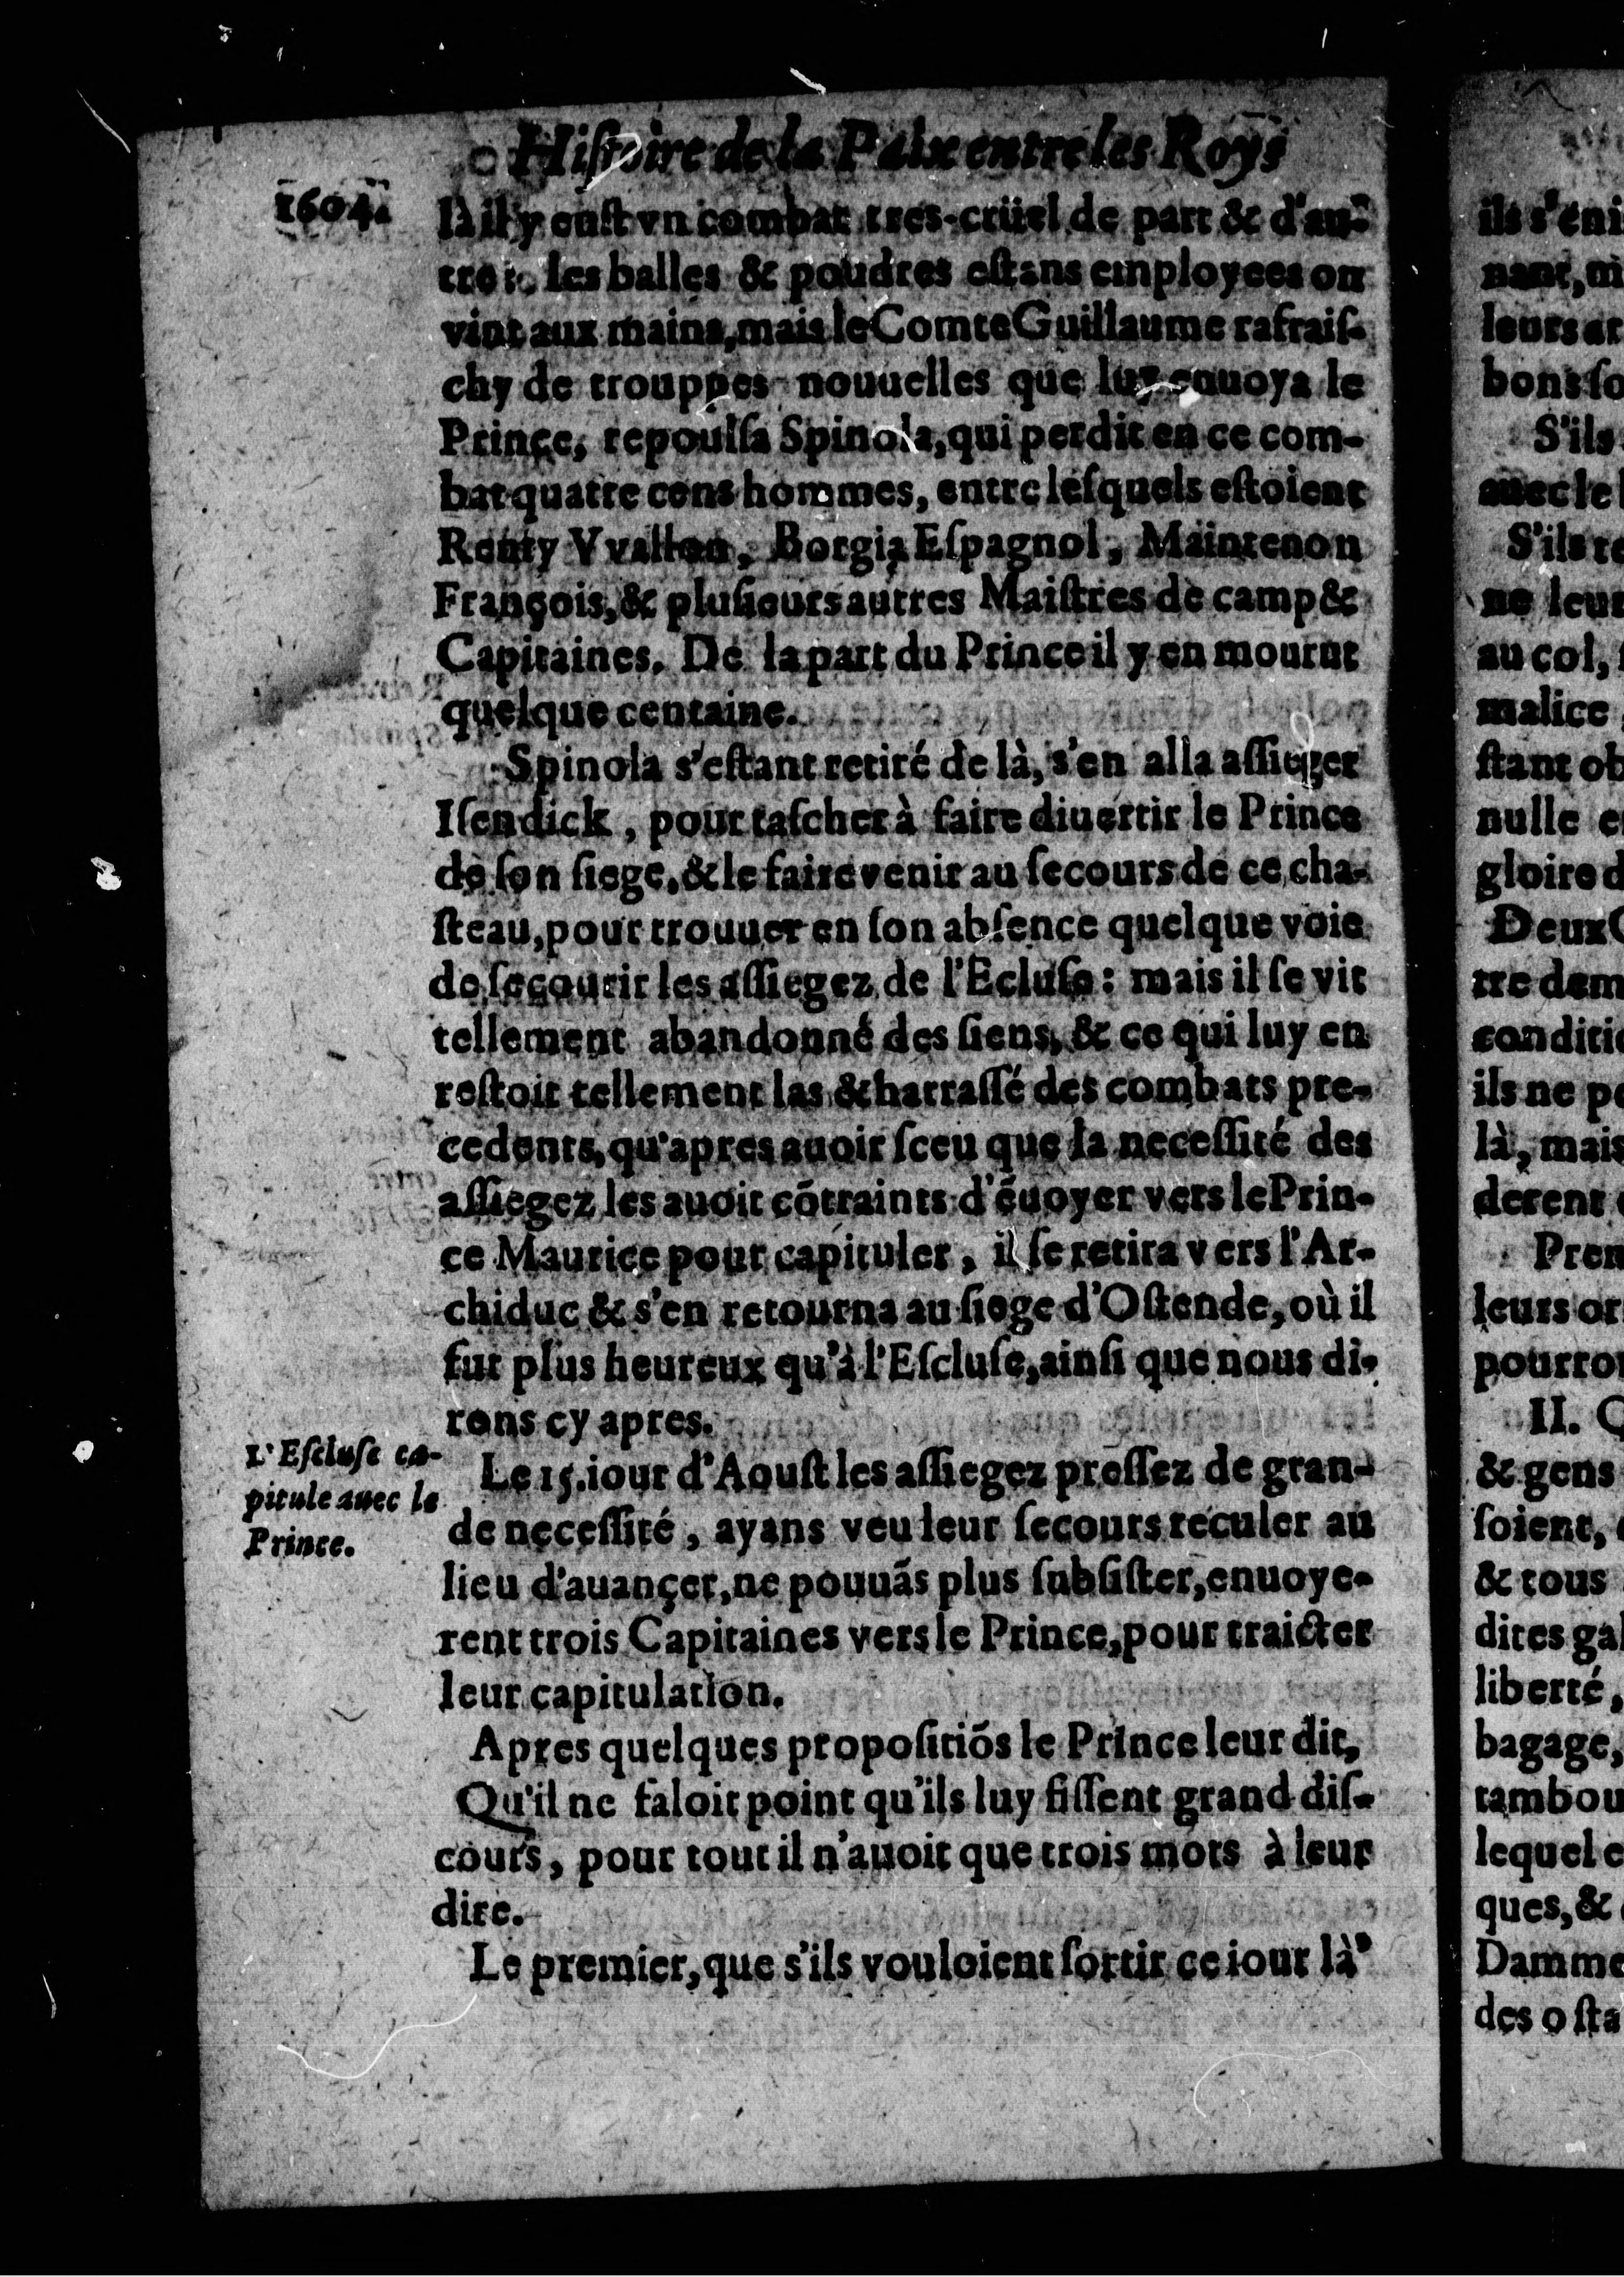 Hiſtoire de la Paix entre les Roys
1604.
là il y euſt vn combat tres-crüel de part & d'au-
tre: les balles & poudres eſtans employees on
vint aux mains, mais le Comte Guillaume rafraiſ-
chy de trouppes nouuelles que luy enuoya le
Prince, repouſſa Spinola, qui perdit en ce com-
bat quatre cens hommes, entre leſquels eſtoient
Renty Vvallon, Borgia Eſpagnol, Maintenon
François, & pluſieurs autres Maiſtres de camp &
Capitaines. De la part du Prince il y en mourut
quelque centaine.
Spinola s'eſtant retiré de là, s'en alla aſſieger
Iſendick, pour taſcher à faire diuertir le Prince
de ſon ſiege, & le faire venir au ſecours de ce cha-
ſteau, pour trouuer en ſon abſence quelque voie
de ſecourir les aſſiegez de l'Ecluſe: mais il ſe vit
tellement abandonné des ſiens, & ce qui luy en
reſtoit tellement las & harraſſé des combats pre-
cedents, qu'apres auoir ſceu que la neceſſité des
aſſiegez les auoit cõtraints d'ẽuoyer vers le Prin-
ce Maurice pour capituler, il ſe retira vers l'Ar-
chiduc & s'en retourna au ſiege d'Oſtende, où il
fut plus heureux qu'à l'Eſcluſe, ainſi que nous di-
rons cy apres.
L'Eſcluſe ca-
pitule auec le
Prince.
Le 15. iour d'Aouſt les aſſiegez preſſez de gran-
de neceſſité, ayans veu leur ſecours reculer au
lieu d'auançer, ne pouuãs plus ſubſiſter, enuoye-
rent trois Capitaines vers le Prince, pour traicter
leur capitulation.
Apres quelques propoſitiõs le Prince leur dit,
Qu'il ne faloit point qu'ils luy fiſſent grand diſ-
cours, pour tout il n'auoit que trois mots à leur
dire.
Le premier, que s'ils vouloient ſortir ce iour là
ils s'eni
nant, m
leurs ar
bons ſo
S'ils
auec le
S'ils re
ne leur
au col,
malice
ſtant ob
nulle e
gloire d
Deux
tre dem
conditio
ils ne po
là, mais
derent
Prem
leurs or
pourron
II. Q
& gens
ſoient,
& tous
dites gal
liberté,
bagage,
tambou
lequel e
ques, &
Damme
des oſta